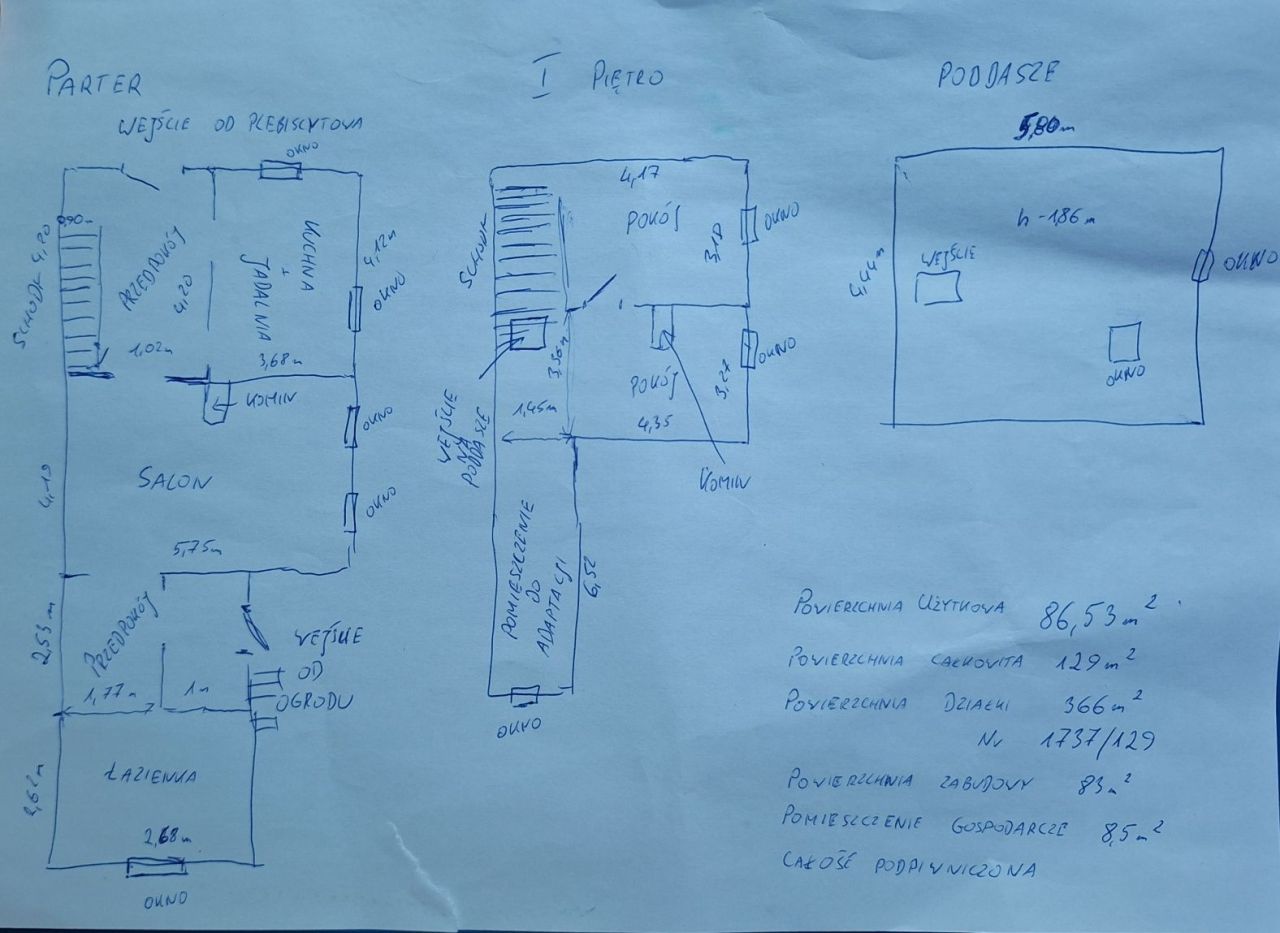 PARTER
WEJŚCIE OD PLEBISCYTOWA
OKNO
0,90m
SCHODY 4,20
PRZEDPOKÓJ
4,20
KUCHNIA
+
JADALNIA
4,12m
OKNO
1,02m
3,68m
KOMIN
OKNO
4,19
SALON
OKNO
5,75m
2,53m
PRZEDPOKÓJ
WEJŚCIE
OD
OGRODU
1,77m
1m
ŁAZIENKA
2,62m
2,68m
OKNO
I PIĘTRO
4,17
SCHODY
POKÓJ
3,18
OKNO
3,36m
OKNO
POKÓJ
3,27
1,45m
4,35
WEJŚCIE
NA
PODDASZE
KOMIN
POMIESZCZENIE
DO
ADAPTACJI
6,52
OKNO
PODDASZE
5,80m
h-1,86m
4,44m
WEJŚCIE
OKNO
OKNO
POWIERZCHNIA UŻYTKOWA 86,53m²
POWIERZCHNIA CAŁKOWITA 129m²
POWIERZCHNIA DZIAŁKI 366m²
Nr 1737/129
POWIERZCHNIA ZABUDOWY 83m²
POMIESZCZENIE GOSPODARCZE 8,5m²
CAŁOŚĆ PODPIWNICZONA